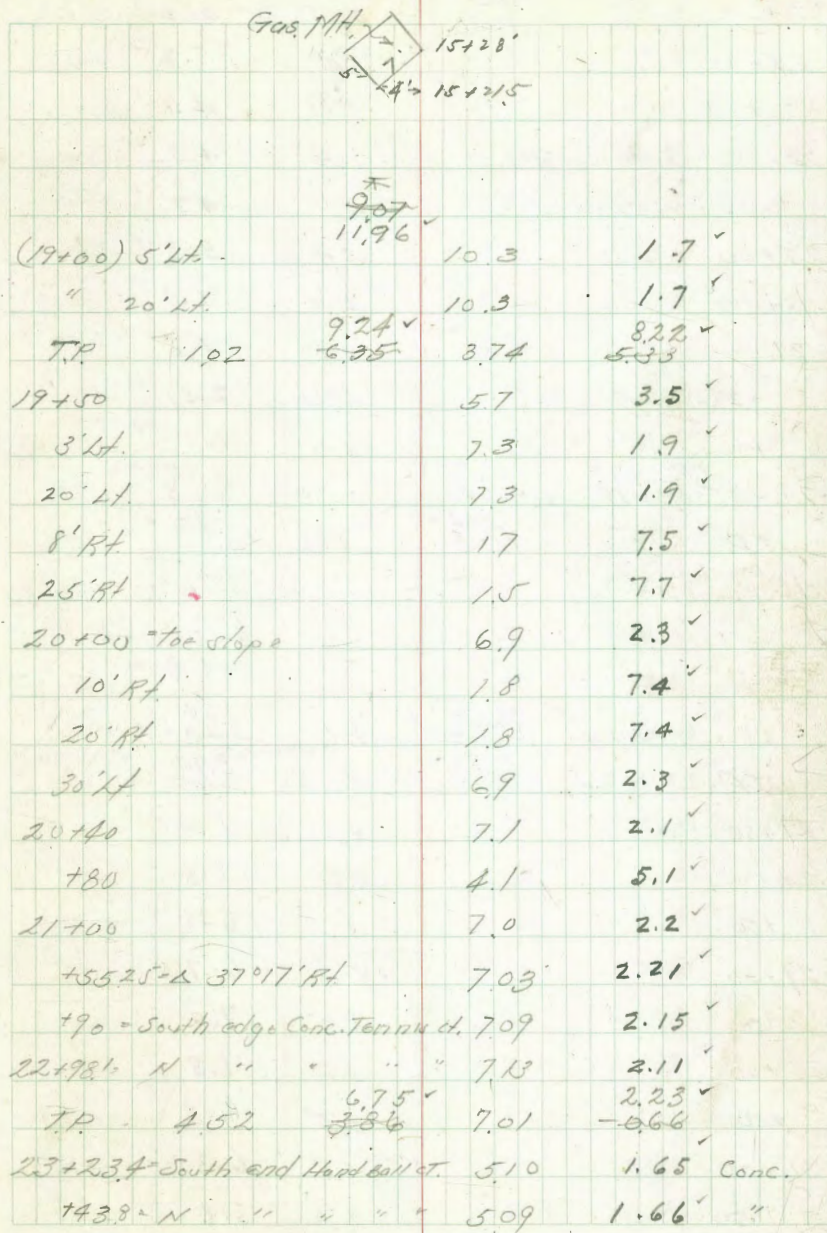 Gas. MH. 15+28'
5' 4' 15+21.5
9.07
11.96 ✓
(19+00) 5' Lt. 10.3 1.7 ✓
" 20' Lt. 10.3 1.7 ✓
9.24 ✓ 8.22 ✓
T.P. 1.02 6.35 3.74 5.33
19+50 5.7 3.5 ✓
3' Lt. 7.3 1.9 ✓
20' Lt. 7.3 1.9 ✓
8' Rt. 1.7 7.5 ✓
25' Rt 1.5 7.7 ✓
20+00 = toe slope 6.9 2.3 ✓
10' Rt. 1.8 7.4 ✓
20' Rt 1.8 7.4 ✓
30' Lt 6.9 2.3 ✓
20+40 7.1 2.1 ✓
+80 4.1 5.1 ✓
21+00 7.0 2.2 ✓
+55.25 = Δ 37°17' Rt 7.03 2.21 ✓
+90 = South edge Conc. Tennis ct. 7.09 2.15 ✓
22+98.1 = N " " " " 7.13 2.11 ✓
6.75 ✓ 2.23 ✓
T.P. 4.52 3.86 7.01 -0.66
23+23.4 = South end Hand ball ct. 5.10 1.65 ✓ Conc.
+43.8 = N " " " " 5.09 1.66 ✓ "